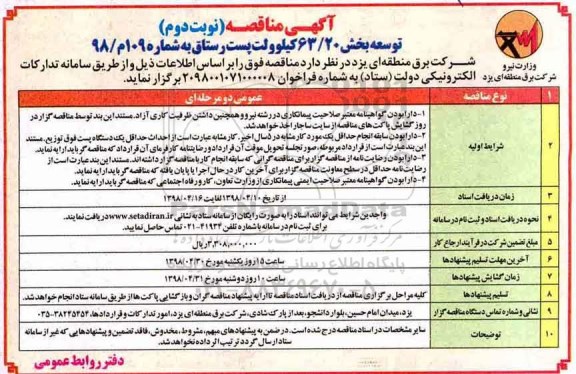 آگهی مناقصه (نوبت دوم)
توسعه بخش ۶۳/۲۰ کیلوولت پست رستاق به شماره ۱۰۹م/۹۸
وزارت نیرو
شرکت برق منطقه‌ای یزد
شرکت برق منطقه‌ای یزد در نظر دارد مناقصه فوق را بر اساس اطلاعات ذیل و از طریق سامانه تدارکات
الکترونیکی دولت (ستاد) به شماره فراخوان ۲۰۹۸۰۰۱۰۷۱۰۰۰۰۰۸ برگزار نماید.
۱ نوع مناقصه عمومی دو مرحله‌ای
۲ شرایط اولیه
۱-دارا بودن گواهینامه معتبر صلاحیت پیمانکاری در رشته نیرو و همچنین داشتن ظرفیت کاری آزاد. مستند این بند توسط مناقصه گزار در
روز گشایش پاکت‌های مناقصه از سایت ساجار اخذ خواهد شد.
۲-دارا بودن سابقه انجام حداقل یک مورد کار مشابه در ۵ سال اخیر. کار مشابه عبارت است از احداث حداقل یک دستگاه پست فوق توزیع. مستند
این بند عبارت است از قرارداد مربوطه، صورتجلسه تحویل موقت آن قرارداد و رضایتنامه کارفرمای آن قرارداد که مناقصه گر باید ارایه نماید.
۳-دارا بودن رضایت نامه از مناقصه گزار برای مناقصه گرانی که سابقه انجام کار با مناقصه گزار داشته‌اند. مستند این بند عبارت است از
رضایت نامه حداقل در سطح معاونت مناقصه گزار برای آخرین کار در حال اجرا یا پایان یافته که مناقصه گر باید ارایه نماید.
۴-دارا بودن گواهینامه معتبر صلاحیت ایمنی پیمانکاری از وزارت تعاون، کار و رفاه اجتماعی که مناقصه گر باید ارایه نماید.
۳ زمان دریافت اسناد از تاریخ ۱۳۹۸/۰۴/۱۰ لغایت ۱۳۹۸/۰۴/۱۶
۴ نحوه دریافت اسناد و ثبت نام در سامانه
واجدین شرایط می توانند اسناد را به صورت رایگان از سامانه ستاد به نشانی www.setadiran.ir دریافت نمایند.
برای ثبت نام در سامانه با شماره تلفن ۴۱۹۳۴-۰۲۱ تماس حاصل نمایید.
۵ مبلغ تضمین شرکت در فرآیند ارجاع کار ۳,۳۰۸,۰۰۰,۰۰۰ ریال
۶ آخرین مهلت تسلیم پیشنهادها ساعت ۱۵ روز یکشنبه مورخ ۱۳۹۸/۰۴/۳۰
۷ زمان گشایش پیشنهادها ساعت ۱۰ روز دوشنبه مورخ ۱۳۹۸/۰۴/۳۱
۸ تسلیم پیشنهادها کلیه مراحل برگزاری مناقصه از دریافت اسناد مناقصه تا ارایه پیشنهاد مناقصه گران و بازگشایی پاکت‌ها از طریق سامانه ستاد انجام خواهد شد.
۹ نشانی و شماره تماس دستگاه مناقصه گزار یزد، میدان امام حسین، بلوار دانشجو، بعد از پارک شادی، شرکت برق منطقه‌ای یزد، امور تدارکات و قراردادها، ۳۸۲۴۵۴۵۴-۰۳۵
۱۰ توضیحات
سایر مشخصات در اسناد مناقصه درج شده است. در ضمن به پیشنهادهای مبهم، مشروط، مخدوش، فاقد تضمین و پیشنهادهایی که غیر از سامانه
ستاد ارسال گردد ترتیب اثر داده نخواهد شد.
دفتر روابط عمومی